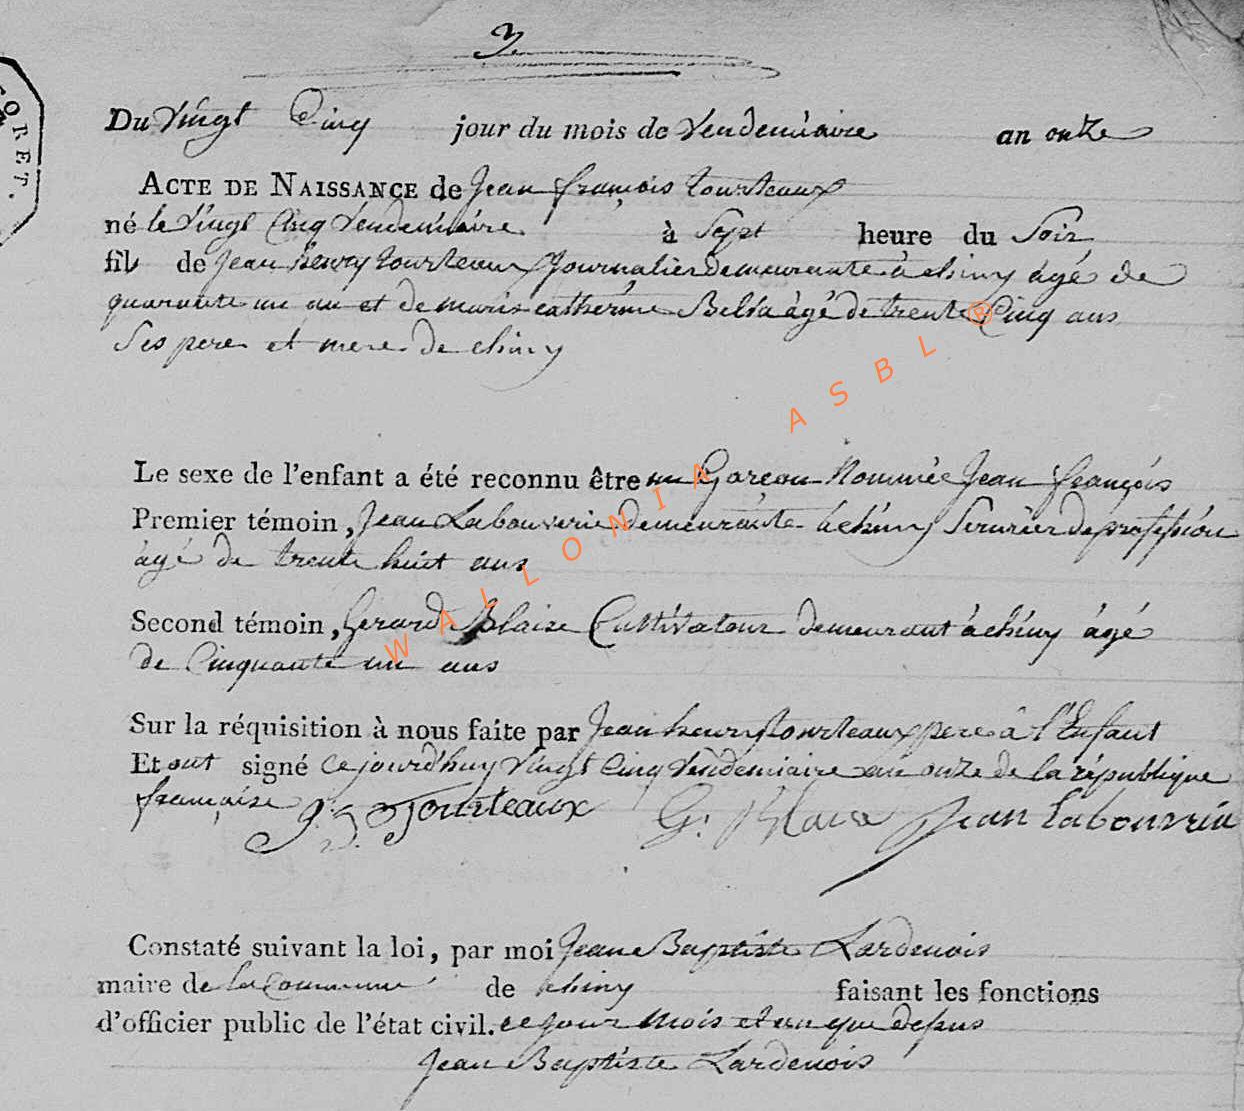 3
ORET.
Du Vingt Cinq jour du mois de Vendemiaire an onze
ACTE DE NAISSANCE de Jean françois tourteaux
né le Vingt Cinq Vendemiaire à Sept heure du Soir
fils de Jean henry tourteaux Journalier demeurante à chiny agé de
quarante un an et de marie catherine Belva âgé de trente Cinq ans
Ses pere et mere de chiny
Le sexe de l'enfant a été reconnu être un Garçon Nommée Jean françois
Premier témoin, Jean Labouverie demeurante à chiny Serurier de profession
âgé de trente huit ans
Second témoin, Gerard Blaise Cultivateur demeurant à chiny âgé
de Cinquante un ans
Sur la réquisition à nous faite par Jean henry tourteaux pere â l'Enfant
Et ont signé Ce jourd'huy Vingt Cinq Vendemiaire an onze de la république
française J h Tourteaux G: Blaise Jean Labouvrie
Constaté suivant la loi, par moi Jean Baptiste Lardenois
maire de la Commune de chiny faisant les fonctions
d'officier public de l'état civil. ce jour mois et an que depus
Jean Baptiste Lardenois
WALLONIA ASBL ®